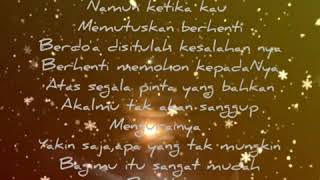 Namun ketika kau
Memutuskan berhenti
Berdo'a disitulah kesalahan nya
Berhenti memohon kepadaNya
Atas segala pinta yang bahkan
Akalmu tak akan sanggup
Mengurainya
Yakin saja,apa yang tak mungkin
Bagimu itu sangat mudah